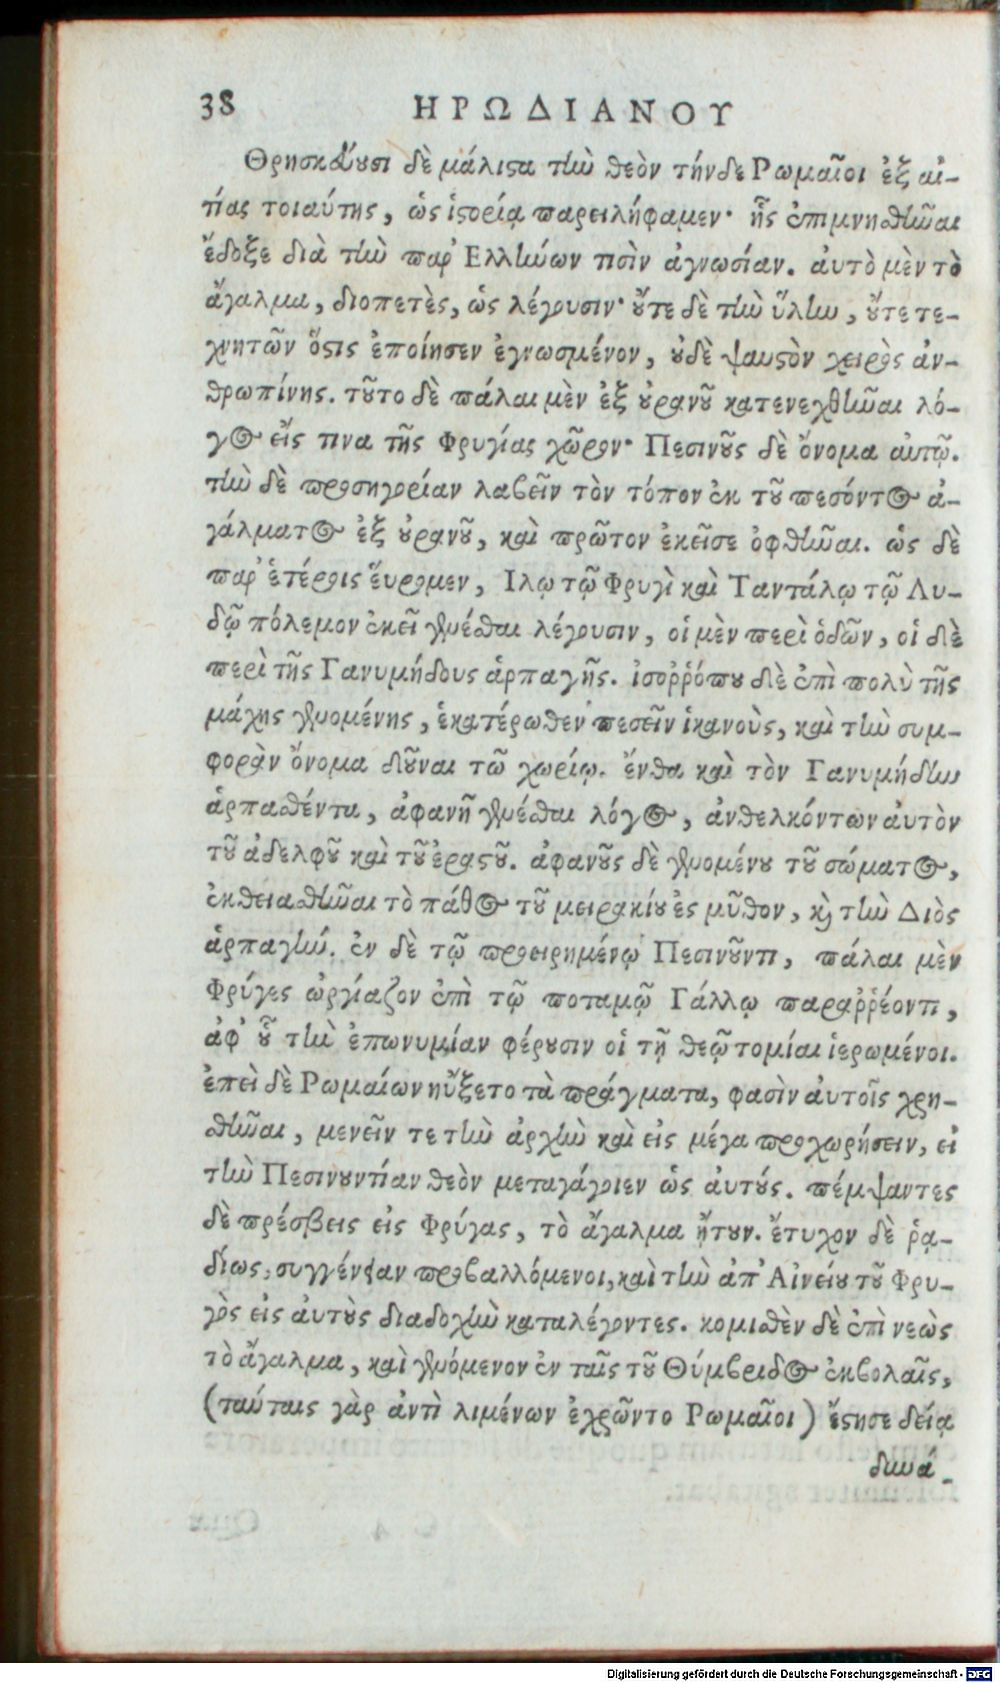 38 ΗΡΩΔΙΑΝΟΥ
Θρησκεύουσι δὲ μάλιστα τὴν θεὸν τήνδε Ρωμαῖοι ἐξ αἰ-
τίας τοιαύτης, ὡς ἱστορίᾳ παρειλήφαμεν· ἧς ἐπιμνησθῆναι
ἔδοξε διὰ τὴν παρ' Ελλήνων τισὶν ἀγνωσίαν. αὐτὸ μὲν τὸ
ἄγαλμα, διοπετὲς, ὡς λέγουσιν· οὔτε δὲ τὴν ὕλην, οὔτε τε-
χνητῶν ὅστις ἐποίησεν ἐγνωσμένον, οὐδὲ ψαυστὸν χειρὸς ἀν-
θρωπίνης. τοῦτο δὲ πάλαι μὲν ἐξ οὐρανοῦ κατενεχθῆναι λό-
γος εἴς τινα τῆς Φρυγίας χῶρον· Πεσινοῦς δὲ ὄνομα αὐτῷ.
τὴν δὲ προσηγορίαν λαβεῖν τὸν τόπον ἐκ τοῦ πεσόντος ἀ-
γάλματος ἐξ οὐρανοῦ, καὶ πρῶτον ἐκεῖσε ὀφθῆναι. ὡς δὲ
παρ' ἑτέροις εὕρομεν, Ιλῳ τῷ Φρυγὶ καὶ Ταντάλῳ τῷ Λυ-
δῷ πόλεμον ἐκεῖ γενέσθαι λέγουσιν, οἱ μὲν περὶ ὁδῶν, οἱ δὲ
περὶ τῆς Γανυμήδους ἁρπαγῆς. ἰσοῤῥόπου δὲ ἐπὶ πολὺ τῆς
μάχης γενομένης, ἑκατέρωθεν πεσεῖν ἱκανοὺς, καὶ τὴν συμ-
φορὰν ὄνομα δοῦναι τῶ χωρίῳ. ἔνθα καὶ τὸν Γανυμήδην
ἁρπασθέντα, ἀφανῆ γενέσθαι λόγος, ἀνθελκόντων αὐτὸν
τοῦ ἀδελφοῦ καὶ τοῦ ἐραστοῦ. ἀφανοῦς δὲ γενομένου τοῦ σώματος,
ἐκθειασθῆναι τὸ πάθος τοῦ μειρακίου ἐς μῦθον, καὶ τὴν Διὸς
ἁρπαγήν. ἐν δὲ τῷ προειρημένῳ Πεσινοῦντι, πάλαι μὲν
Φρύγες ὠργίαζον ἐπὶ τῷ ποταμῷ Γάλλῳ παραῤῥέοντι,
ἀφ' οὗ τὴν ἐπωνυμίαν φέρουσιν οἱ τῇ θεῷ τομίαι ἱερωμένοι.
ἐπεὶ δὲ Ρωμαίων ηὔξετο τὰ πράγματα, φασὶν αὐτοῖς χρη-
σθῆναι, μενεῖν τε τὴν ἀρχὴν καὶ εἰς μέγα προχωρήσειν, εἰ
τὴν Πεσινουντίαν θεὸν μεταγάγοιεν ὡς αὐτούς. πέμψαντες
δὲ πρέσβεις εἰς Φρύγας, τὸ ἄγαλμα ᾔτουν. ἔτυχον δὲ ῥᾳ-
δίως, συγγένειαν προβαλλόμενοι, καὶ τὴν ἀπ' Αἰνείου τοῦ Φρυ-
γὸς εἰς αὐτοὺς διαδοχὴν καταλέγοντες. κομισθὲν δὲ ἐπὶ νεὼς
τὸ ἄγαλμα, καὶ γενόμενον ἐν ταῖς τοῦ Θύμβριδος ἐκβολαῖς,
(ταύταις γὰρ ἀντὶ λιμένων ἐχρῶντο Ρωμαῖοι) ἔστησε θείᾳ
δυνά-
Digitalisierung gefördert durch die Deutsche Forschungsgemeinschaft - DFG